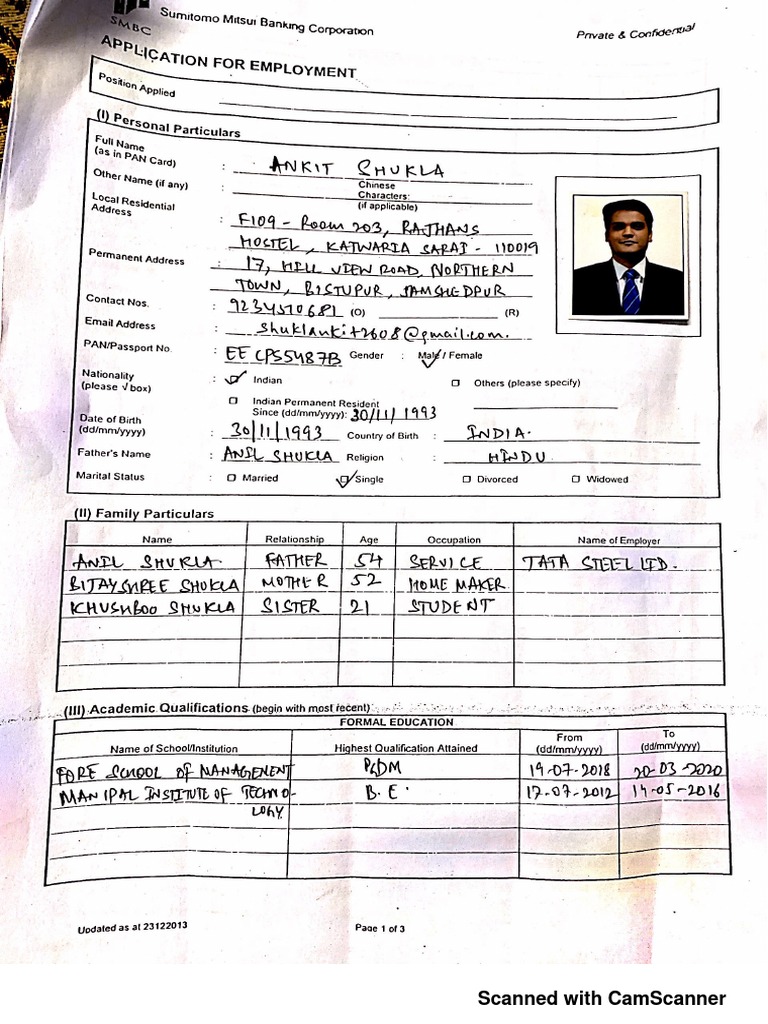 SMBC
Sumitomo Mitsui Banking Corporation
Private & Confidential
APPLICATION FOR EMPLOYMENT
Position Applied
(I) Personal Particulars
Full Name
(as in PAN Card) : ANKIT SHUKLA
Other Name (if any) : Chinese Characters: (if applicable)
Local Residential
Address : F109 - ROOM 203, RAJHANS
HOSTEL, KATWARIA SARAI - 110019
Permanent Address : 17, HILL VIEW ROAD, NORTHERN
TOWN, BISTUPUR, JAMSHEDPUR
Contact Nos. : 9234510681 (O) (R)
Email Address : shuklankit2608@gmail.com.
PAN/Passport No. : EECPS5487B Gender : Male / Female
Nationality
(please √ box) : Indian Others (please specify)
Indian Permanent Resident
Since (dd/mm/yyyy): 30/11/1993
Date of Birth
(dd/mm/yyyy) : 30/11/1993 Country of Birth : INDIA.
Father's Name : ANIL SHUKLA Religion : HINDU.
Marital Status : Married Single Divorced Widowed
(II) Family Particulars
Name Relationship Age Occupation Name of Employer
ANIL SHUKLA. FATHER 54 SERVICE TATA STEEL LTD.
BIJAYSHREE SHUKLA MOTHER 52 HOME MAKER
KHUSHBOO SHUKLA SISTER 21 STUDENT
(III) Academic Qualifications (begin with most recent)
FORMAL EDUCATION
Name of School/Institution Highest Qualification Attained From (dd/mm/yyyy) To (dd/mm/yyyy)
FORE SCHOOL OF MANAGEMENT PGDM 19-07-2018 20-03-2020
MANIPAL INSTITUTE OF TECHNO- B.E. 17-07-2012 14-05-2016
LOGY
Updated as at 23122013
Page 1 of 3
Scanned with CamScanner